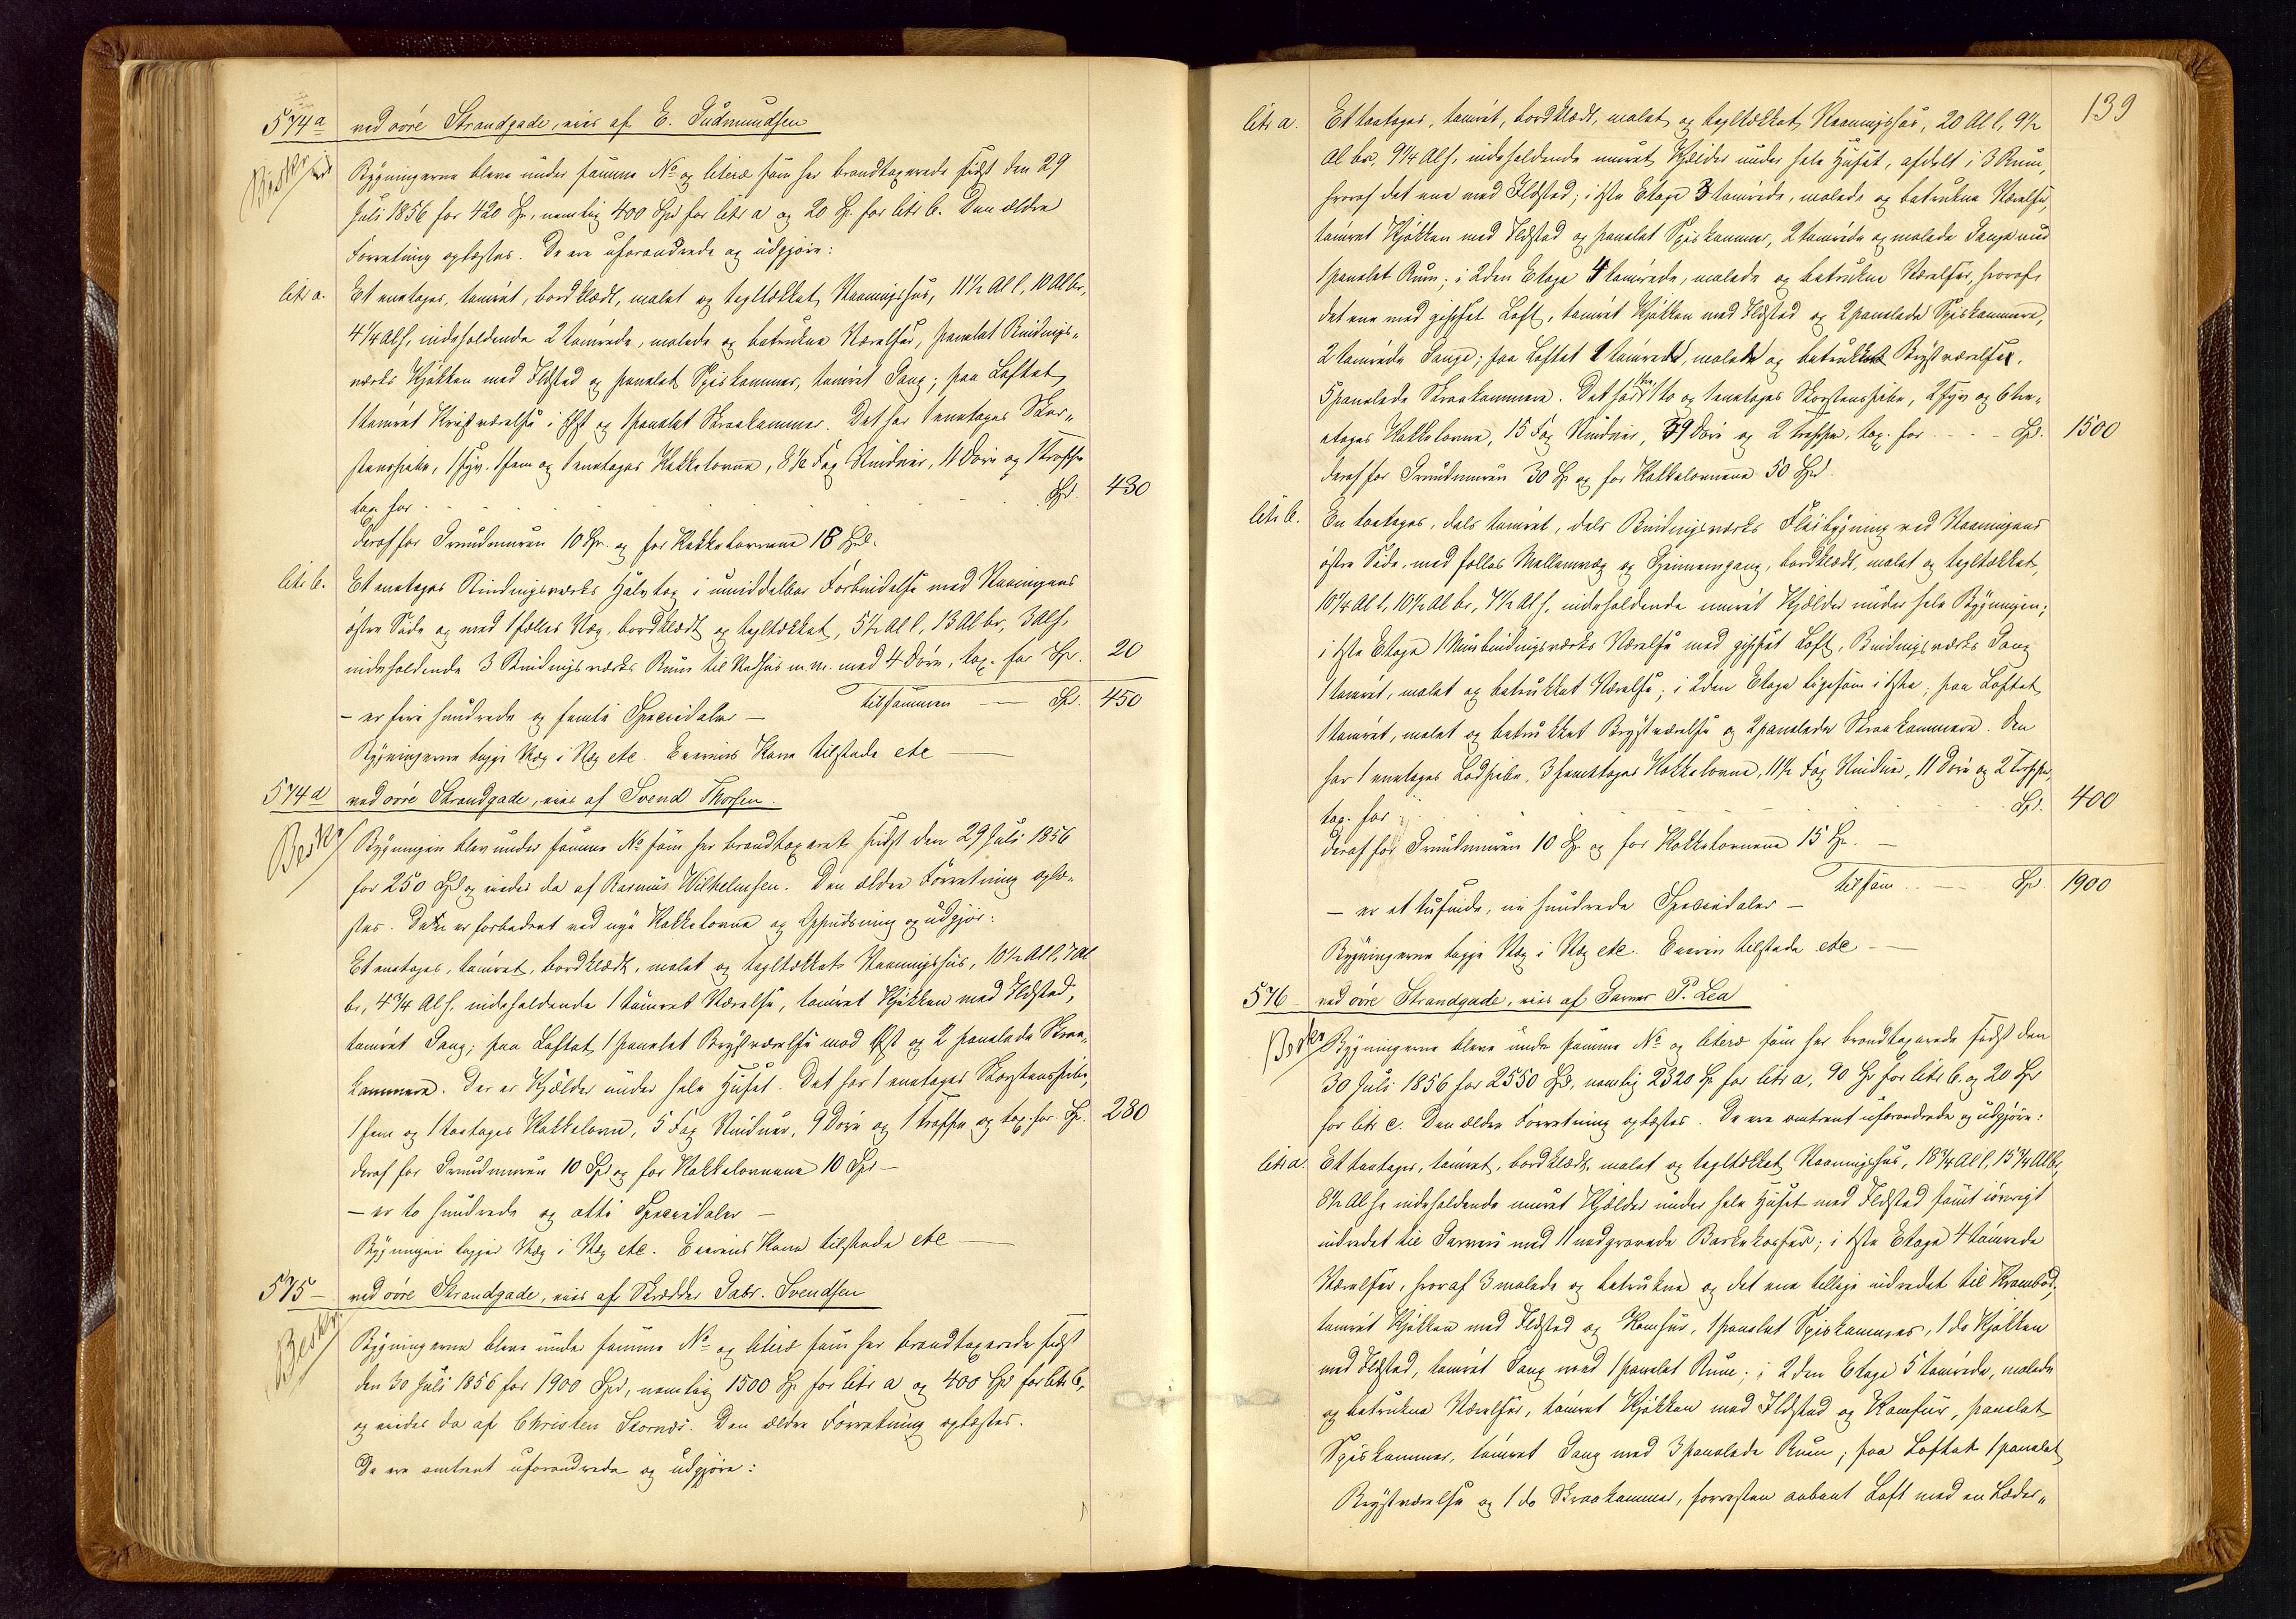 574a ved øvre Strandgade, eies af E. Gudmundsen
Beskr
Bygningerne bleve under samme No og litera som her brandtaxerede sidst den 29
Juli 1856 for 420 Spd, nemlig 400 Spd for litr a og 20 Sp. for litr b. Den ældre
Forretning oplæstes. De ere uforandrede og udgjøre:
litr a. Et enetages, tømret, bordklædt, malet og tegltækket Vaaningshus, 11½ Al l, 10 Al br,
4¼ Al h, indeholdende 2 tømrede, malede og betrukne Værelser, panelet Bindings-
værks Kjøkken med Ildsted og panelet Spiskammer, tømret Gang; paa Loftet
1 tømret Kvistværelse i Øst og 1 panelet Skraakammer. Det har 1 enetages Skor-
stenspibe, 1 fyr. 1 fem og 1 enetages Kakkelovne, 8½ Fag Vinduer, 11 Døre og 1 Trappe
tax. for Spd. 430
deraf for Grundmuren 10 Sp. og for Kakkelovnene 18 Spd.
litr b. Et enetages Bindingsværks Halvtag i umiddelbar Forbindelse med Vaaningens
østre Side og med 1 fælles Væg, bordklædt og tegltækket, 5½ Al l, 13 Al br, 3 Al h,
indeholdende 3 Bindingsværks Rum til Vedhus m.m. med 4 Døre, tax. for Spd. 20
tilsammen — Spd. 450
— er fire hundrede og femti Speciedaler —
Bygningerne ligge Væg i Væg etc. Eierens Kone tilstede etc —
574d ved øvre Strandgade, eies af Svend Thorsen.
Beskr
Bygningen blev under samme No som her brandtaxeret sidst den 29 Juli 1856
for 250 Spd og eiedes da af Rasmus Wilhelmsen. Den ældre Forretning oplæ-
stes. Den er forbedret ved nye Kakkelovne og Oppudsning og udgjør:
Et enetages, tømret, bordklædt, malet og tegltækket Vaaningshus, 10½ Al l, 7 Al
br, 4¾ Al h, indeholdende 1 tømret Værelse, tømret Kjøkken med Ildsted,
tømret Gang; paa Loftet 1 panelet Brystværelse mod Øst og 2 panelede Skraa-
kammere. Der er Kjælder under hele Huset. Det har 1 enetages Skorstenspibe,
1 fem og 1 toetages Kakkelovn, 5 Fag Vinduer, 9 Døre og 1 Trappe og tax. for Sp. 280
deraf for Grundmuren 10 Spd og for Kakkelovnene 10 Spd —
— er to hundrede og otti Speciedaler —
Bygningen ligger Væg i Væg etc. Eierens Kone tilstede etc —
575 — ved øvre Strandgade, eies af Skrædder Gabr. Svendsen
Beskr.
Bygningerne bleve under samme No og litera som her brandtaxerede sidst
den 30 Juli 1856 for 1900 Spd, nemlig 1500 Sp for litr a og 400 Spd for litr b,
og eiedes da af Christen Stornæs. Den ældre Forretning oplæstes.
De ere omtrent uforandrede og udgjøre:
139
litr a. Et toetages, tømret, bordklædt, malet og tegltækket Vaaningshus, 20 Al l, 9½
Al br, 9¼ Al h, indeholdende muret Kjelder under hele Huset, afdelt i 3 Rum,
hvoraf det ene med Ildsted; i 1ste Etage 3 tømrede, malede og betrukne Værelser,
tømret Kjøkken med Ildsted og panelet Spiskammer, 2 tømrede og malede Gange med
1 panelet Rum; i 2den Etage 4 tømrede, malede og betrukne Værelser, hvoraf
det ene med gipset Loft, tømret Kjøkken med Ildsted og 2 panelede Spiskammere,
2 tømrede Gange; paa Loftet 1 tømrede, malede og betrukket Brystværelse,
5 panelede Skraakammere. Det har 1 to og 1 enetages Skorstenspibe, 2 fyr og 6 tre-
etages Kakkelovne, 15 Fag Vinduer, 39 Døre og 2 Trapper, tax. for Spd. 1500
deraf for Grundmuren 30 Sp og for Kakkelovnene 50 Spd.
litr b. En toetages, dels tømret, dels Bindingsværks Fløibygning ved Vaaningens
østre Side, med fælles Mellemvæg og Gjennemgang, bordklædt, malet og tegltækket,
10¼ Al l, 10½ Al br, 7½ Al h, indeholdende muret Kjælder under hele Bygningen;
i 1ste Etage 1 Murbindingsværks Værelse med gipset Loft, Bindingsværks Gang
1 tømret, malet og betrukket Værelse; i 2den Etage ligesom i 1ste; paa Loftet
1 tømret, malet og betrukket Brystværelse og 2 panelede Skraakammere. Den
har 1 enetages Lodpibe, 3 femetages Kakkelovne, 11½ Fag Vinduer, 11 Døre og 2 Trapper,
tax. for Spd. 400
deraf for Grundmuren 10 Sp og for Kakkelovnene 15 Sp. —
tilsam. — Spd. 1900
— er et tusinde, ni hundrede Speciedaler —
Bygningerne ligge Væg i Væg etc. Eieren tilstede etc —
576 — ved øvre Strandgade, eies af Garver P. Lea
Beskr
Bygningerne bleve under samme No og litera som her brandtaxerede sidst den
30 Juli 1856 for 2550 Spd, nemlig 2320 Sp for litr a, 90 Sp for litr b. og 20 Spd
for litr c. Den ældre Forretning oplæstes. De ere omtrent uforandrede og udgjøre:
litr a. Et toetages, tømret, bordklædt, malet og tegltækket Vaaningshus, 18¾ Al l, 15¾ Al br,
8½ Al h indeholdende muret Kjælder under hele Huset med Ildsted samt iøvrigt
indredet til Garveri med 11 nedgravede Barkekasser; i 1ste Etage 4 tømrede
Værelser, hvoraf 3 malede og betrukne og det ene tillige indredet til Krambod,
tømret Kjøkken med Ildsted og Komfur, 1 panelet Spiskammer, 1 do Kjøkken
med Ildsted, tømret Gang med 1 panelet Rum; i 2den Etage 5 tømrede, malede
og betrukne Værelser, tømret Kjøkken med Ildsted og Komfur, panelet
Spiskammer, tømret Gang med 3 panelede Rum; paa Loftet 1 panelet
Brystværelse og 1 do Skraakammer, forresten aabent Loft med en Læder-